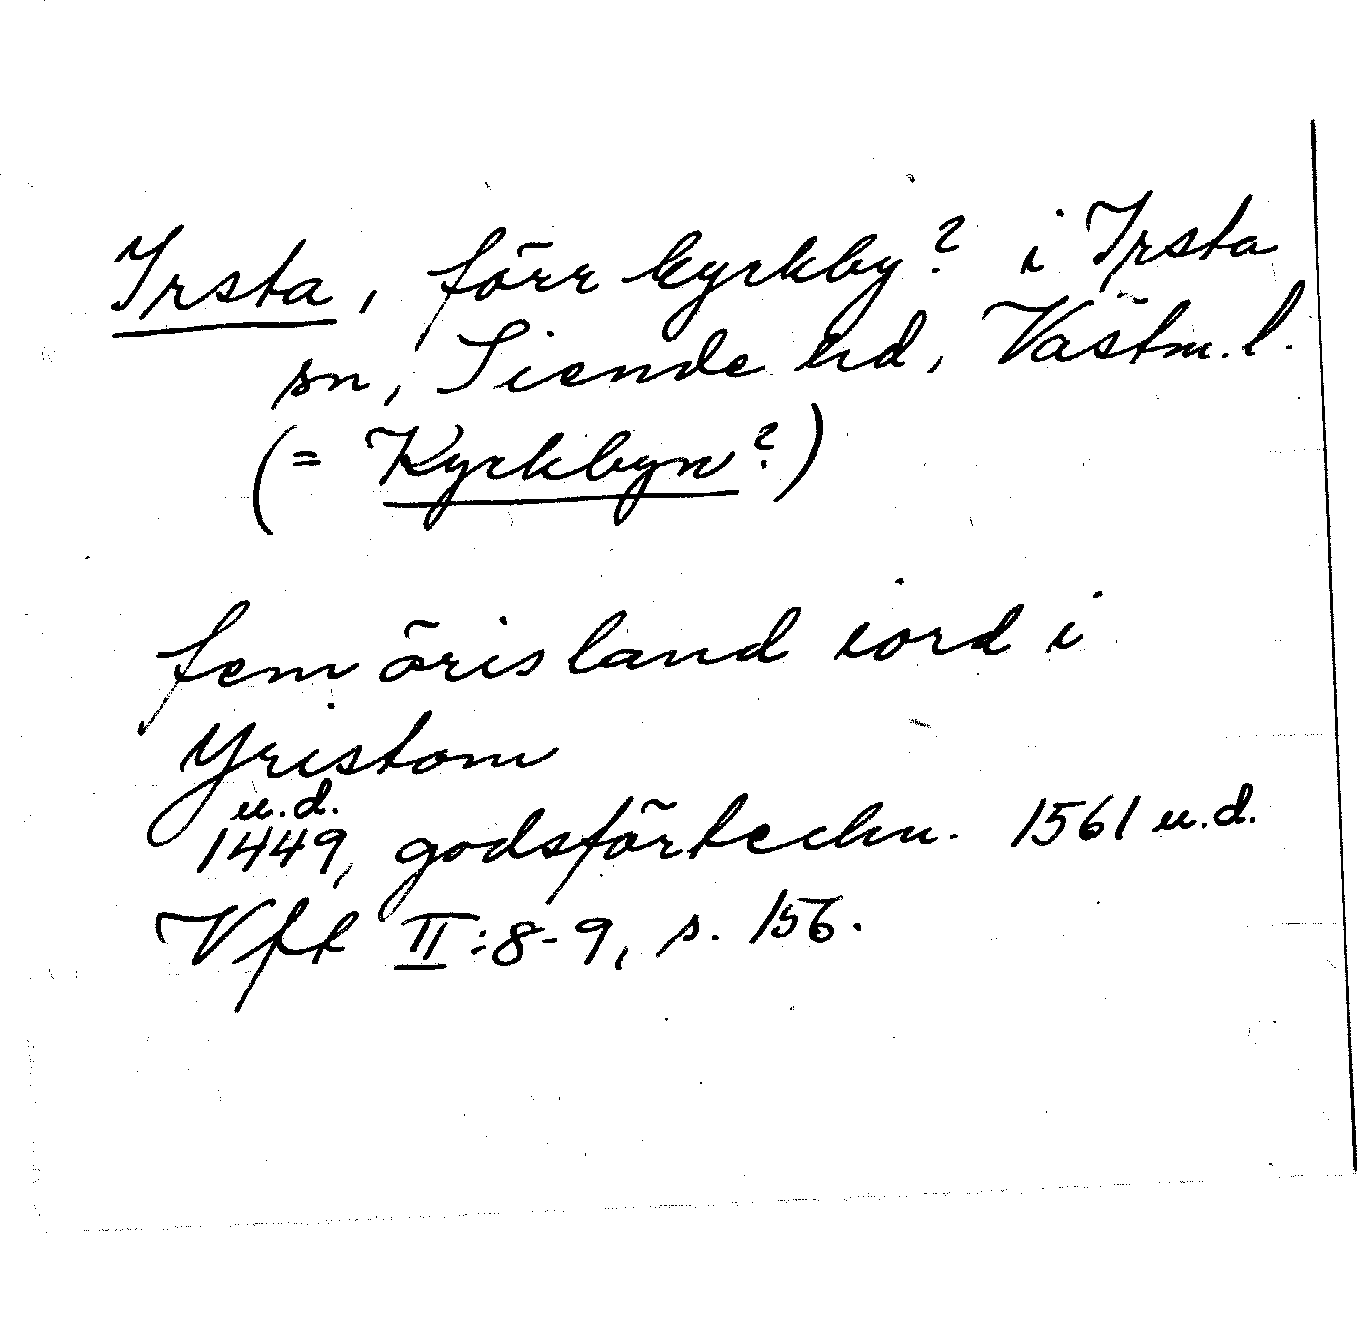 Irsta, förr kyrkby? i Irsta
sn, Siende hd, Västm. l.
(= Kyrkbyn?)
fem örisland iord i
Yristom
u.d.
1449, godsförteckn. 1561 u.d.
Vft II:8-9, s. 156.